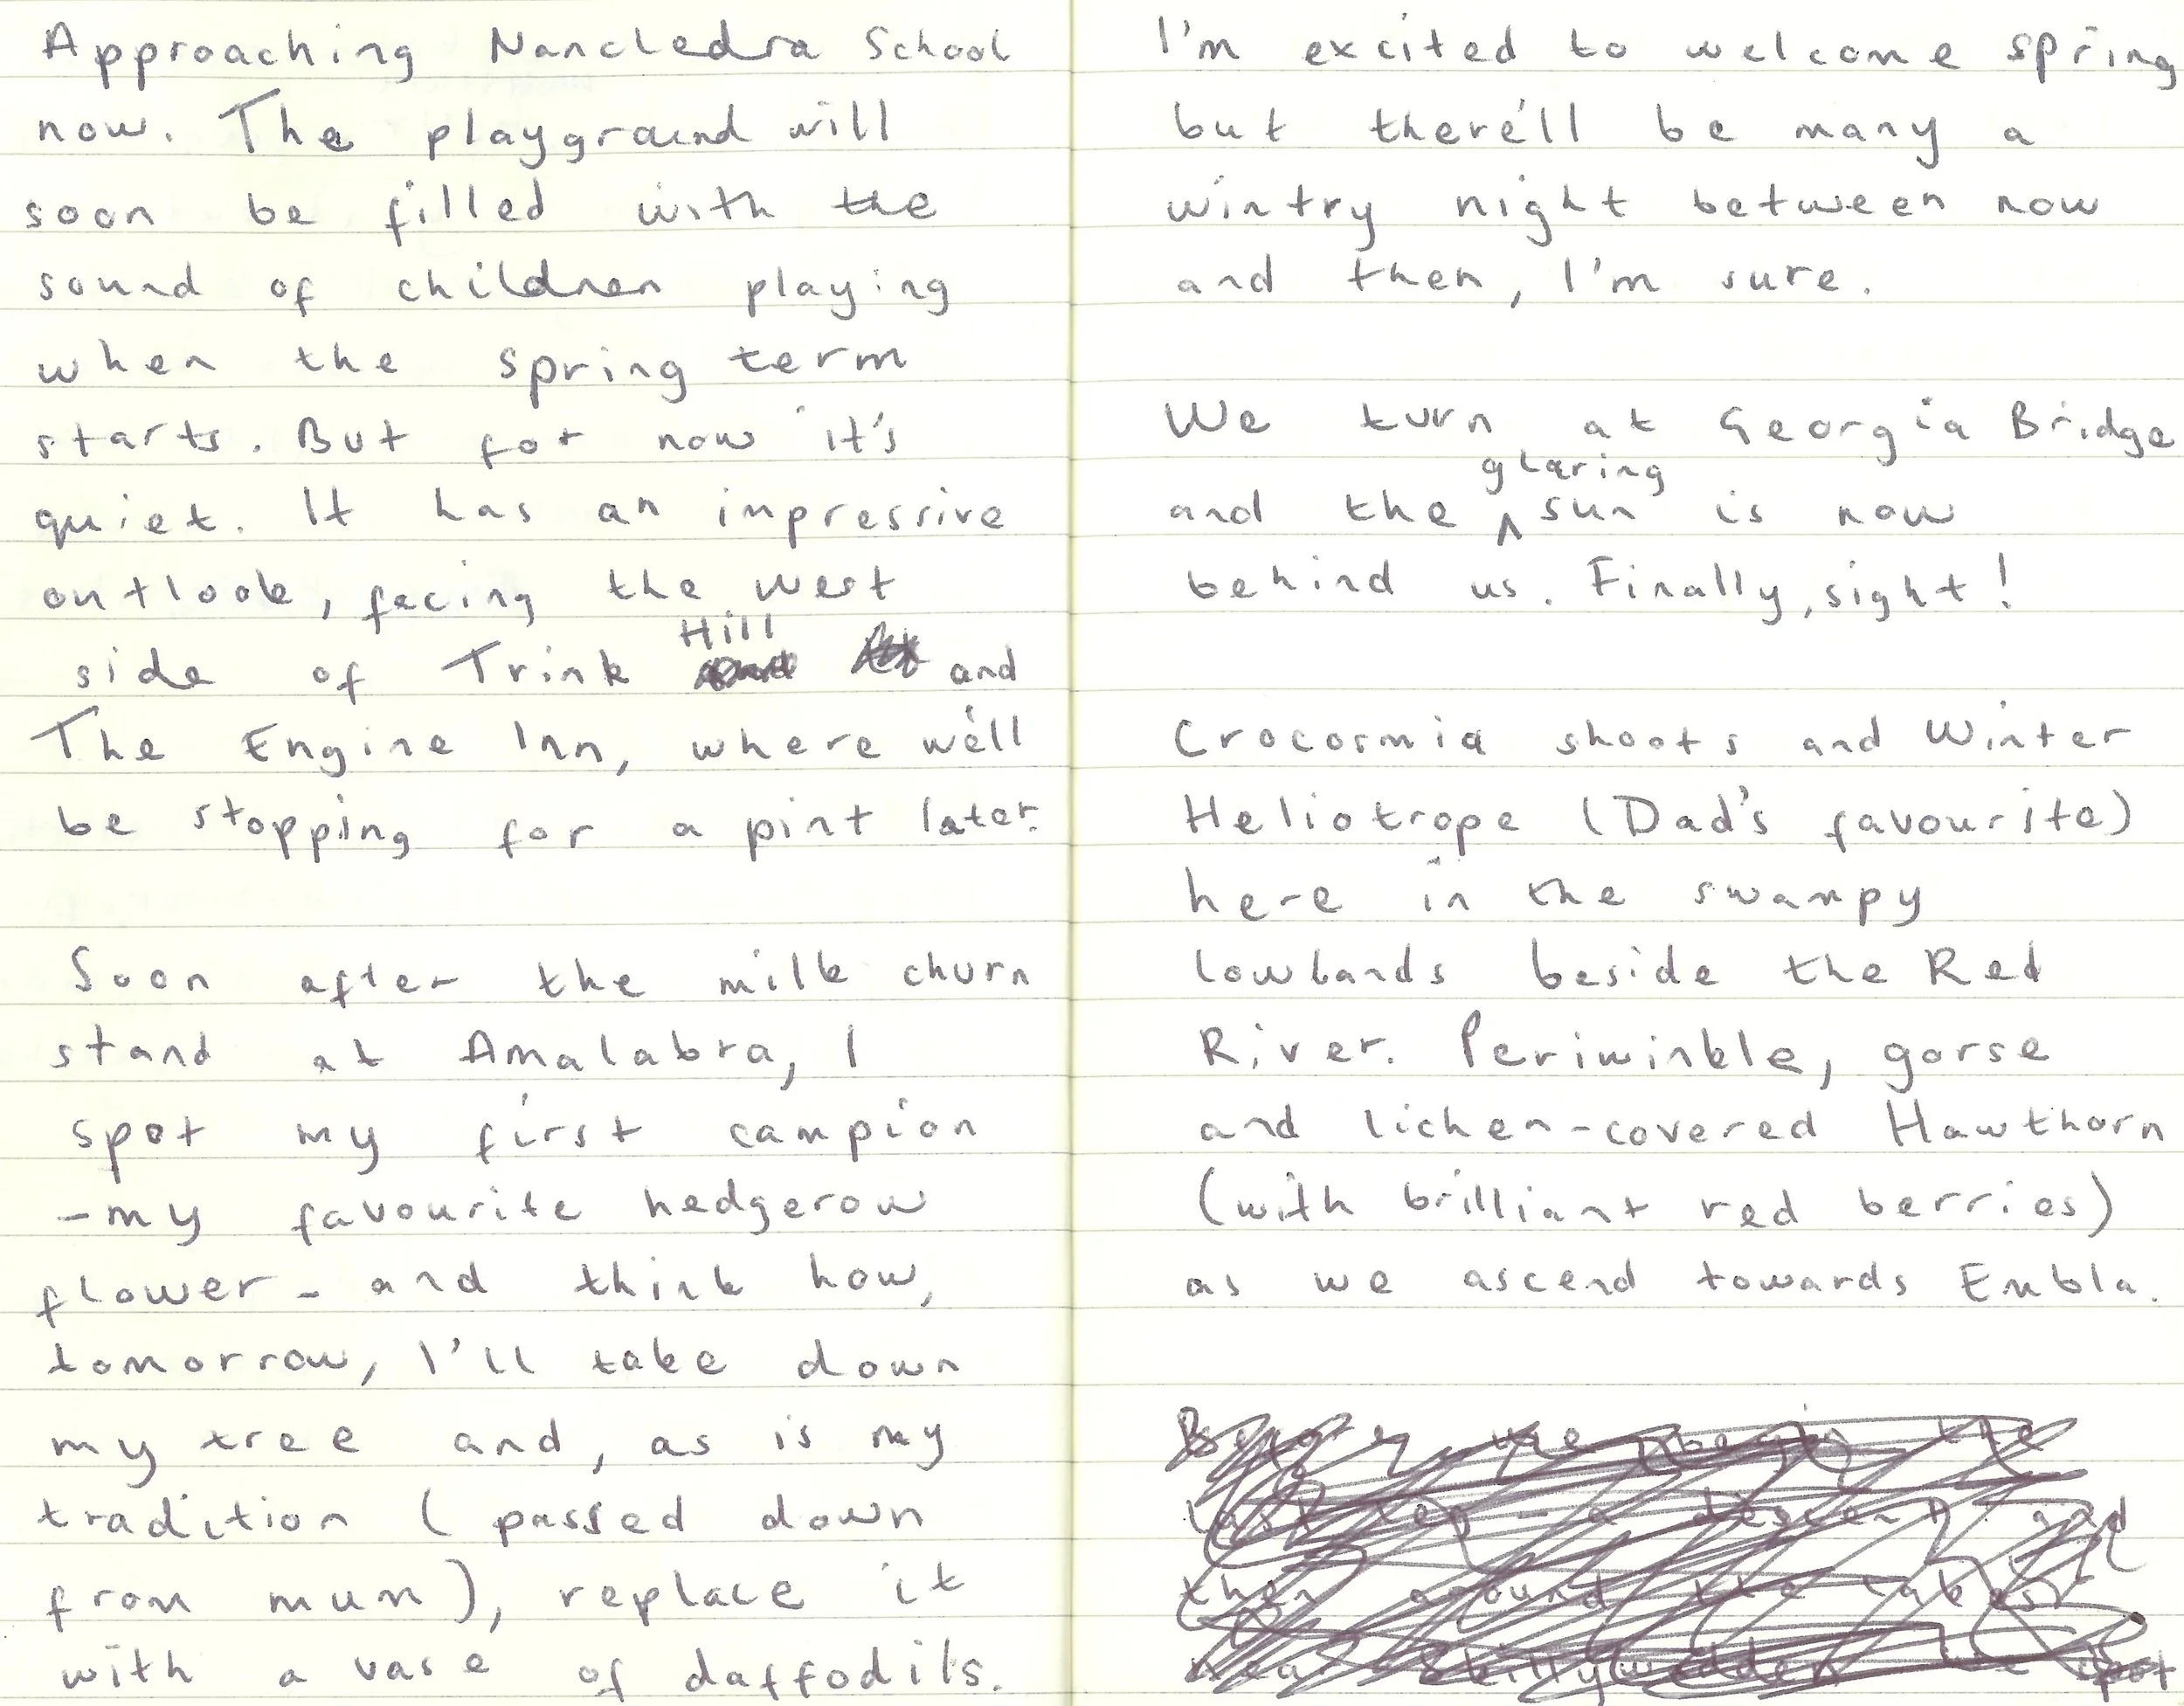 Approaching Nancledra School
now. The playground will
soon be filled with the
sound of children playing
when the spring term
starts. But for now it's
quiet. It has an impressive
outlook, facing the west
side of Trink Hill and
The Engine Inn, where we'll
be stopping for a pint later.
Soon after the milk churn
stand at Amalabra, I
spot my first campion
-my favourite hedgerow
flower - and think how,
tomorrow, I'll take down
my tree and, as is my
tradition (passed down
from mum), replace it
with a vase of daffodils.
I'm excited to welcome spring
but there'll be many a
wintry night between now
and then, I'm sure.
We turn at Georgia Bridge
and the glaring sun is now
behind us. Finally, sight!
Crocosmia shoots and Winter
Heliotrope (Dad's favourite)
here in the swampy
lowlands beside the Red
River. Periwinkle, gorse
and lichen-covered Hawthorn
(with brilliant red berries)
as we ascend towards Embla.
Before we begin the
last leg - a descent and
then around the
near Skillywadden we spot